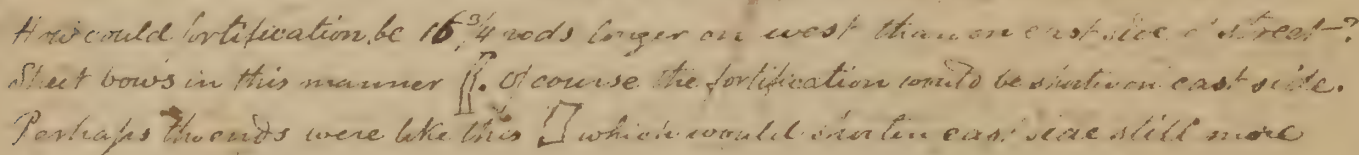 How could fortification be 16 3/4 rods longer on west than on east side of street?
Street bows in this manner . Of course the fortification would be shorter on east side.
Perhaps the ends were like this which would shorten east side still more